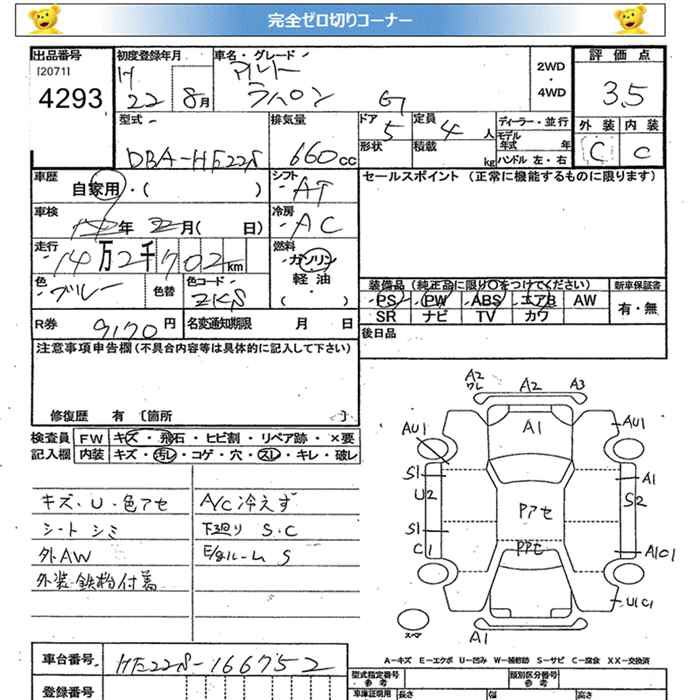 完全ゼロ切りコーナー
出品番号 初度登録年月 車名・グレード 評価点
[2071] H アルト 2WD
4293 22 8月 ラパン G ・4WD 3.5
型式 排気量 ドア 定員 ディーラー・並行 外装 内装
DBA-HE22S 660cc 5 4人 モデル年式 年 C C
形状 積載 kg ハンドル 左・右
車歴 自家用・( ) シフト AT セールスポイント (正常に機能するものに限ります)
車検 年 月( 日) 冷房 AC
走行 14万2千702km 燃料 ガソリン
軽油
・( )
色 ブルー 色替 色コード ZKS
装備品 (純正品に限り○をつけてください) 新車保証書
PS PW ABS エアB AW 有・無
SR ナビ TV カワ
R券 9170円 名変通知期限 月 日 後日品
注意事項申告欄(不具合内容等は具体的に記入して下さい)
修復歴 有 〔箇所 〕
検査員 FW キズ・飛石・ヒビ割・リペア跡・×要
記入欄 内装 キズ・汚レ・コゲ・穴・スレ・キレ・破レ
キズ・U・色アセ A/C冷えず
シート シミ 下廻り S・C
外AW E/gルーム S
外装 鉄粉付着
A2 ワレ A2 A3
A1
AU1 AU1
S1 A1
U2 S2
Pアセ
S1 Pアセ
C1 A1C1
U1C1
スペア A1
A-キズ E-エクボ U-凹み W-補修跡 S-サビ C-腐食 XX-交換済
車台番号 HE22S-166752
型式指定番号 参考 類別区分番号 参考
登録番号 車庫証明用 長さ 幅 高さ